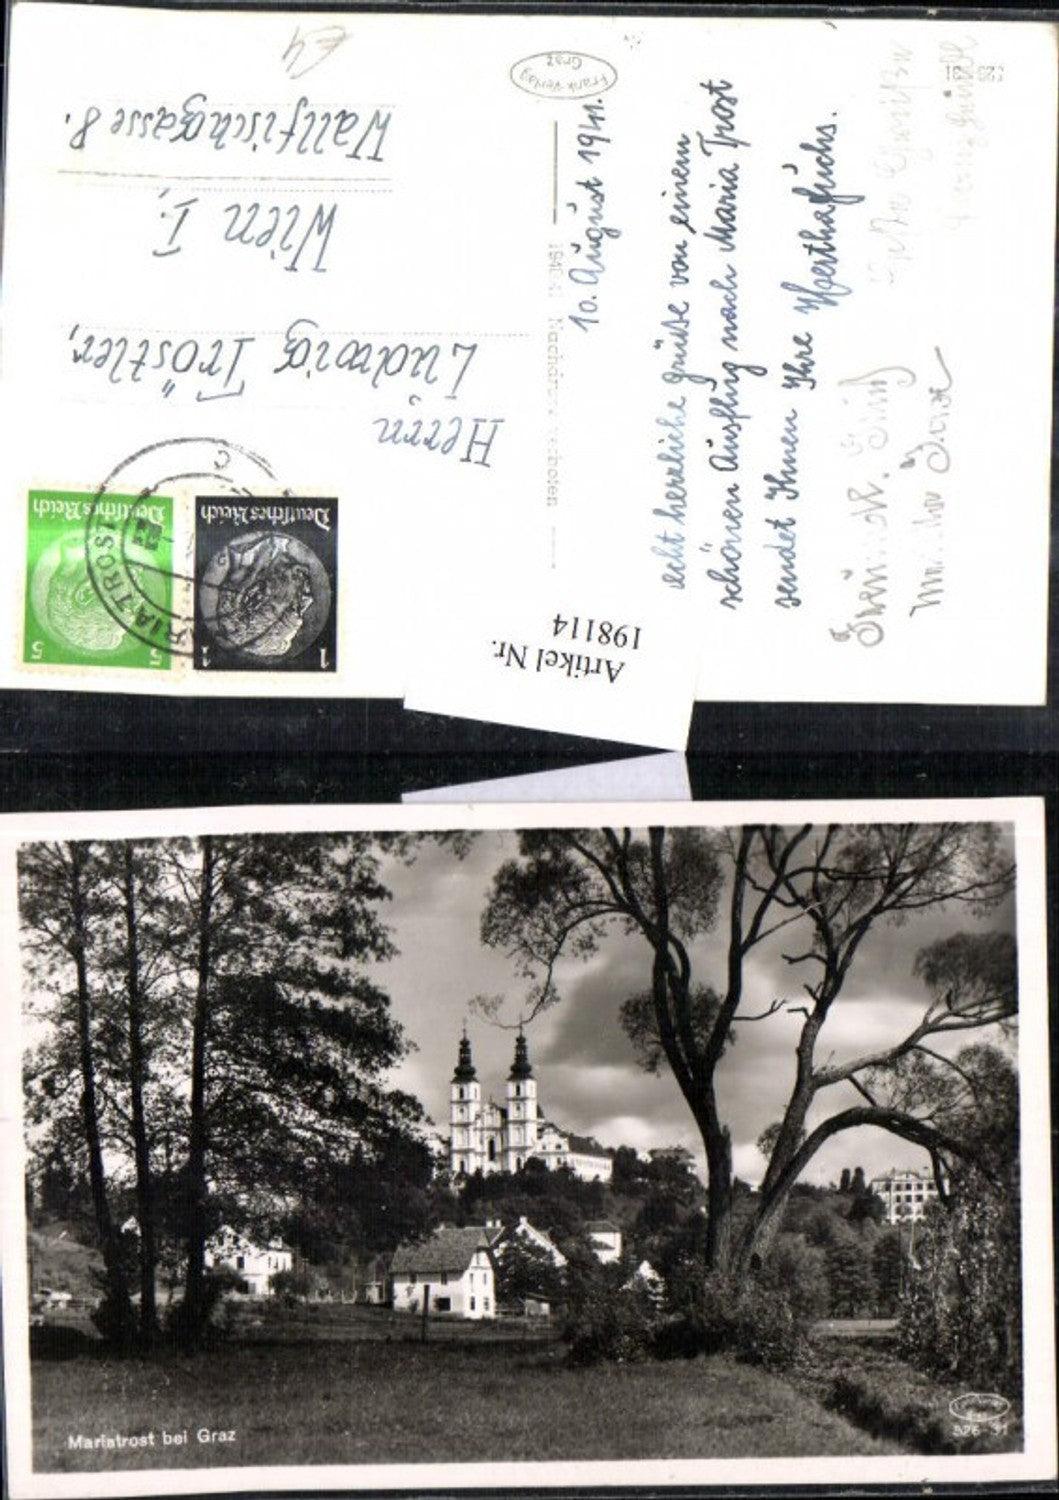 10. August 1941.
echt herzliche Grüße von einem
schönen Ausflug nach Maria Trost
sendet Ihnen Ihre Herthafuchs.
Herrn
Ludwig Tröstler,
Wien I,
Wallfischgasse 8.
Frank-Verlag
Graz
Nachdruck verboten
Deutsches Reich
1
1
Deutsches Reich
5
5
RIA TROST
Artikel Nr.
198114
Mariatrost bei Graz
526 31